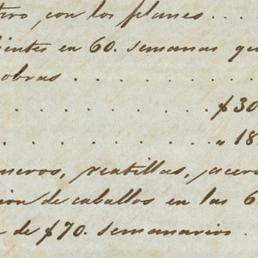 tro, con los planes . . .
ientes en 60. semanas qu
obras . . . . . . . .
. . . . . . . $30
. . . . . . . „ 18
neros, reatillas, acero
ion de caballos en las 6
de $70. semanarios .